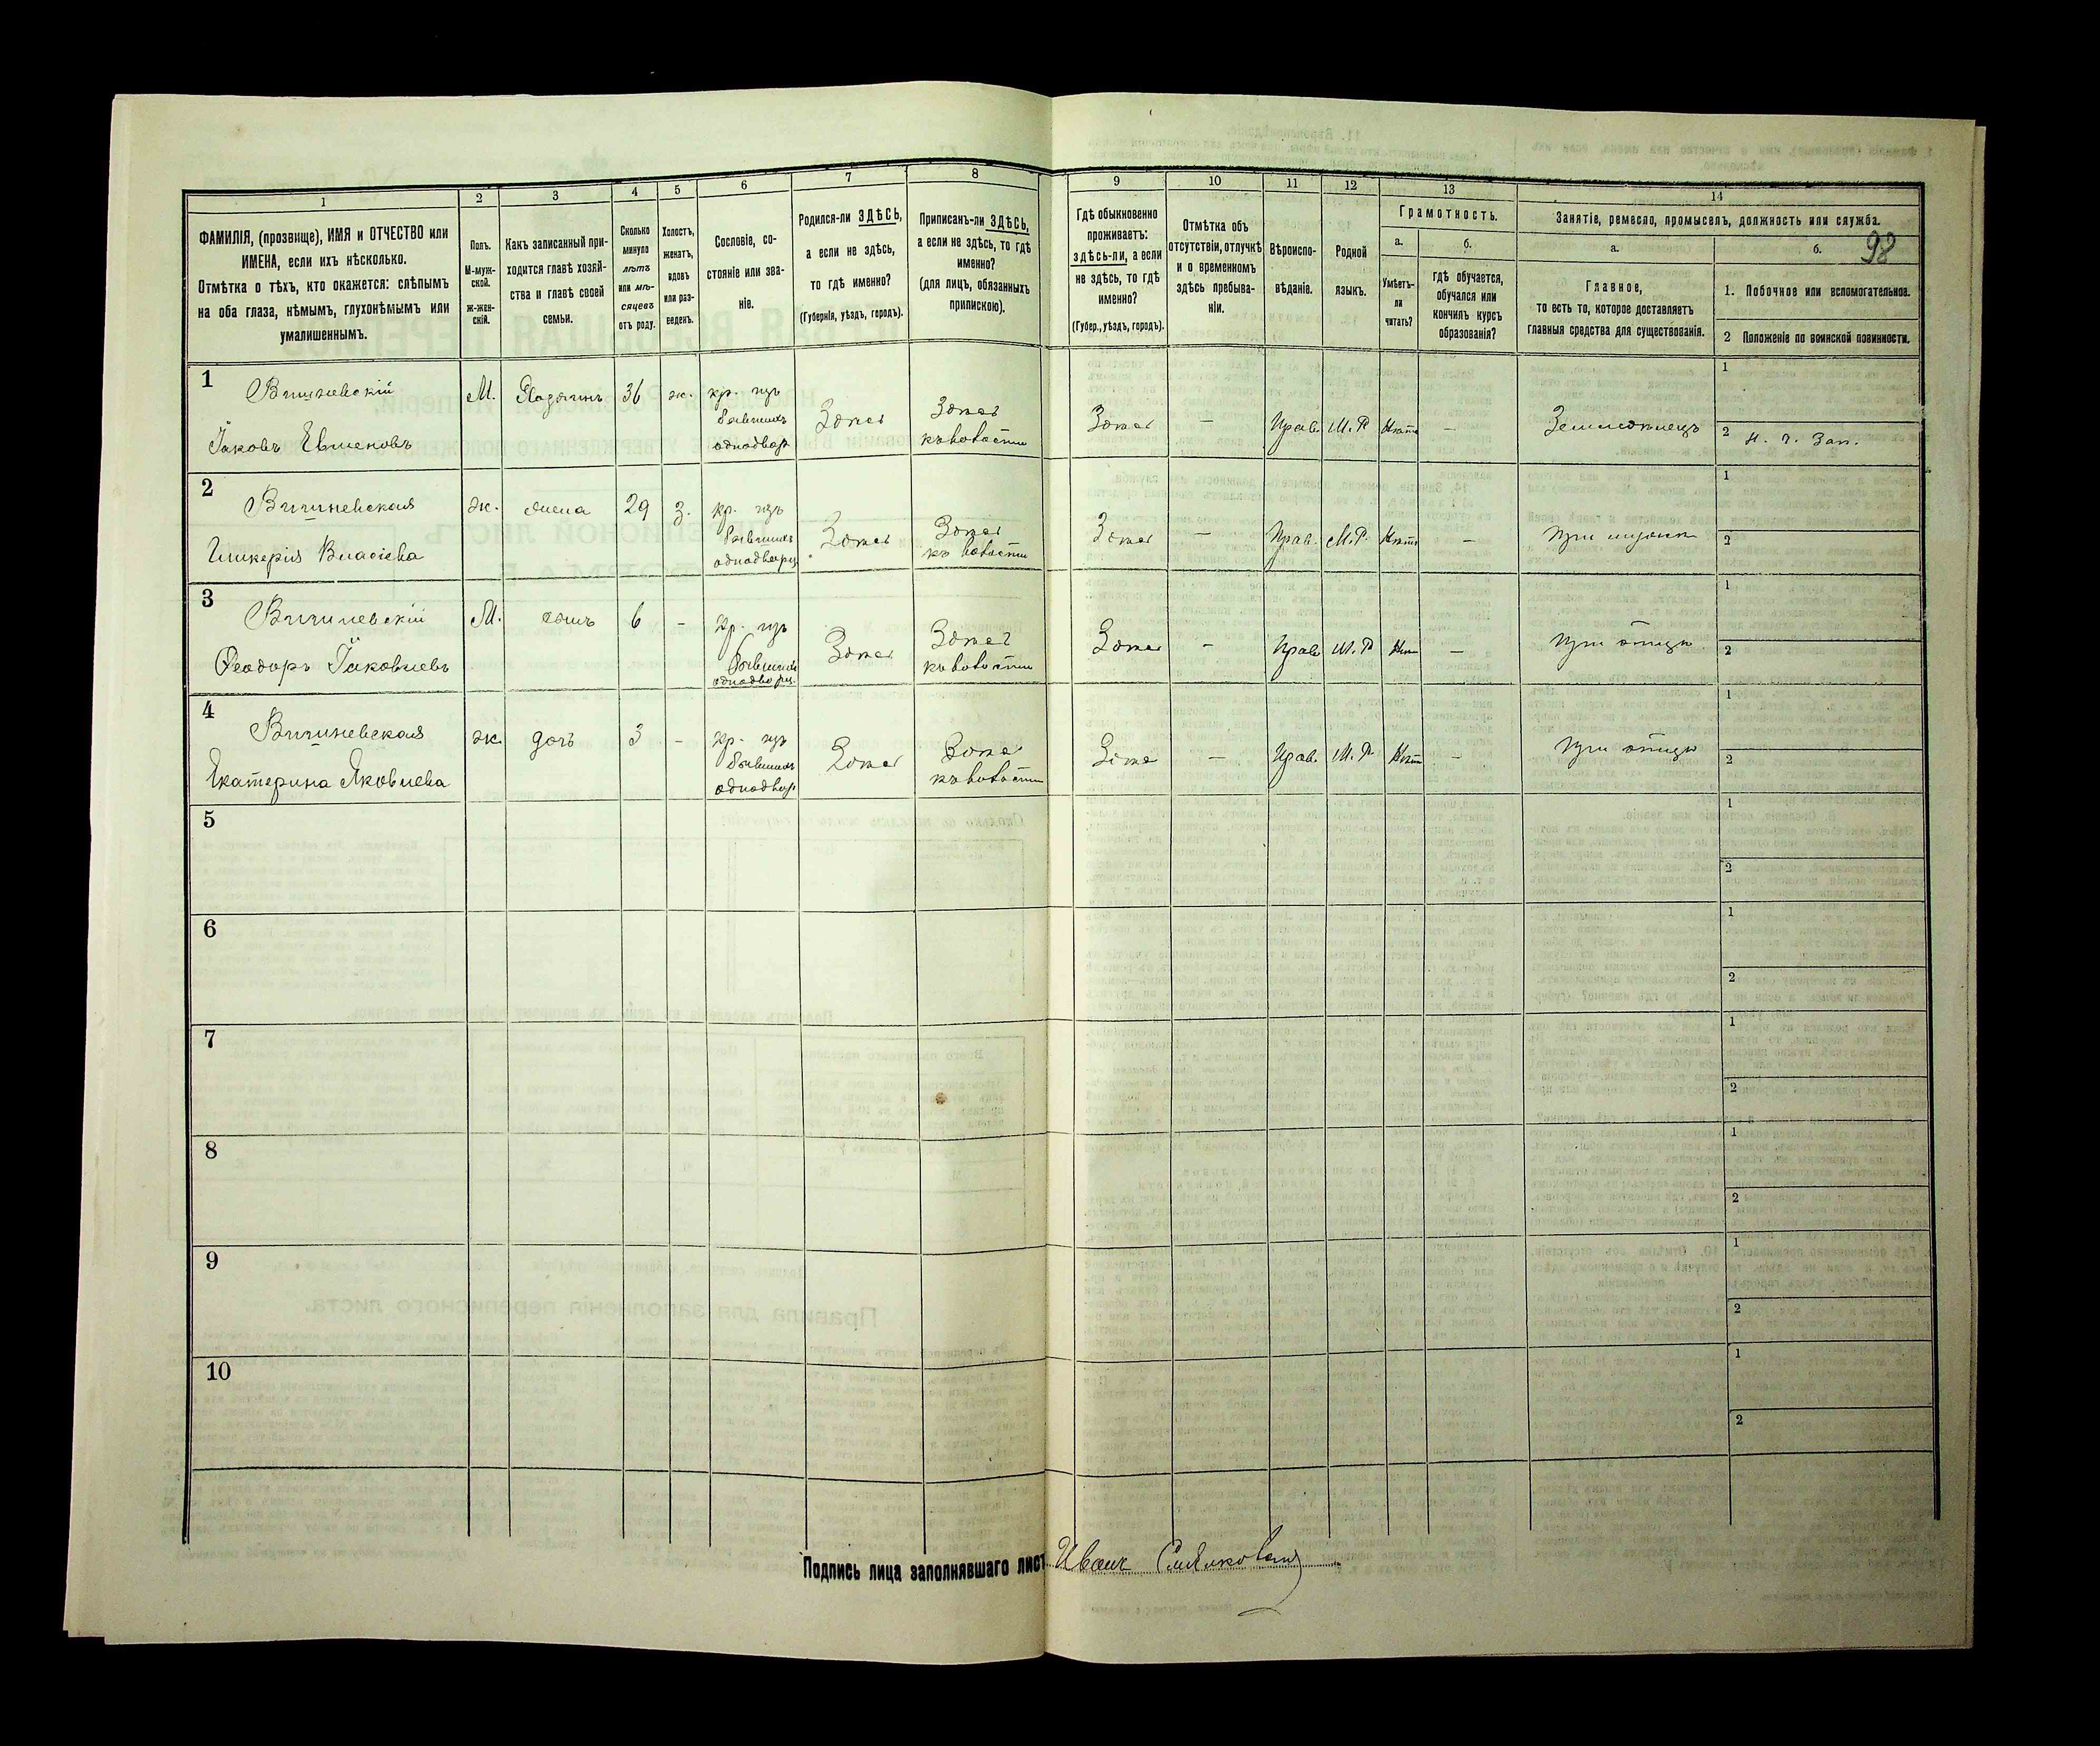 1
2
3
4
5
6
7
8
ФАМИЛІЯ, (прозвище), ИМЯ и ОТЧЕСТВО или
ИМЕНА, если ихъ нѣсколько.
Отмѣтка о тѣхъ, кто окажется: слѣпымъ
на оба глаза, нѣмымъ, глухонѣмымъ или
умалишеннымъ.
Полъ.
М-муж-
ской.
ж-жен-
скій.
Какъ записанный при-
ходится главѣ хозяй-
ства и главѣ своей
семьи.
Сколько
минуло
лѣтъ
или мѣ-
сяцевъ
отъ роду.
Холостъ,
женатъ,
вдовъ
или раз-
веденъ.
Сословіе, со-
стояніе или зва-
ніе.
Родился-ли ЗДѢСЬ,
а если не здѣсь,
то гдѣ именно?
(Губернія, уѣздъ, городъ).
Приписанъ-ли ЗДѢСЬ,
а если не здѣсь, то гдѣ
именно?
(для лицъ, обязанныхъ
припискою).
9
10
11
12
13
14
Гдѣ обыкновенно
проживаетъ:
здѣсь-ли, а если
не здѣсь, то гдѣ
именно?
(Губер., уѣздъ, городъ).
Отмѣтка объ
отсутствіи, отлучкѣ
и о временномъ
здѣсь пребыва-
ніи.
Вѣроиспо-
вѣданіе.
Родной
языкъ.
Грамотность.
а.
Умѣетъ-
ли
читать?
б.
гдѣ обучается,
обучался или
кончилъ курсъ
образованія?
Занятіе, ремесло, промыселъ, должность или служба.
а.
Главное,
то есть то, которое доставляетъ
главныя средства для существованія.
б.
98
1. Побочное или вспомогательное.
2 Положеніе по воинской повинности.
1
Вишневскій
Іаковъ
М.
36
ж.
кр. изъ
бывшихъ
однодвор.
Здесь
Здесь
къ волости
Здесь
—
Прав.
М. Р.
—
Земледелецъ
1
2 Н. ч. Зап.
2
Вишневская
Гликерія Власіева
ж.
жена
29
з.
кр. изъ
бывшихъ
однодворц.
Здесь
Здесь
къ волости
Здесь
—
Прав.
М. Р.
—
При мужѣ
1
2
3
Вишневскій
Феодоръ Іаковлевъ
М.
сынъ
6
-
кр. изъ
бывшихъ
однодворц.
Здесь
Здесь
къ волости
Здесь
-
Прав.
М. Р.
—
При отцѣ
1
2
4
Вишневская
Екатерина Яковлева
ж.
дочь
3
-
кр. изъ
бывшихъ
однодвор.
Здесь
Здесь
къ волости
Здесь
—
Прав.
М. Р.
—
При отцѣ
1
2
5
1
2
6
1
2
7
1
2
8
1
2
9
1
2
10
1
2
Подпись лица заполнявшаго лист
Иванъ